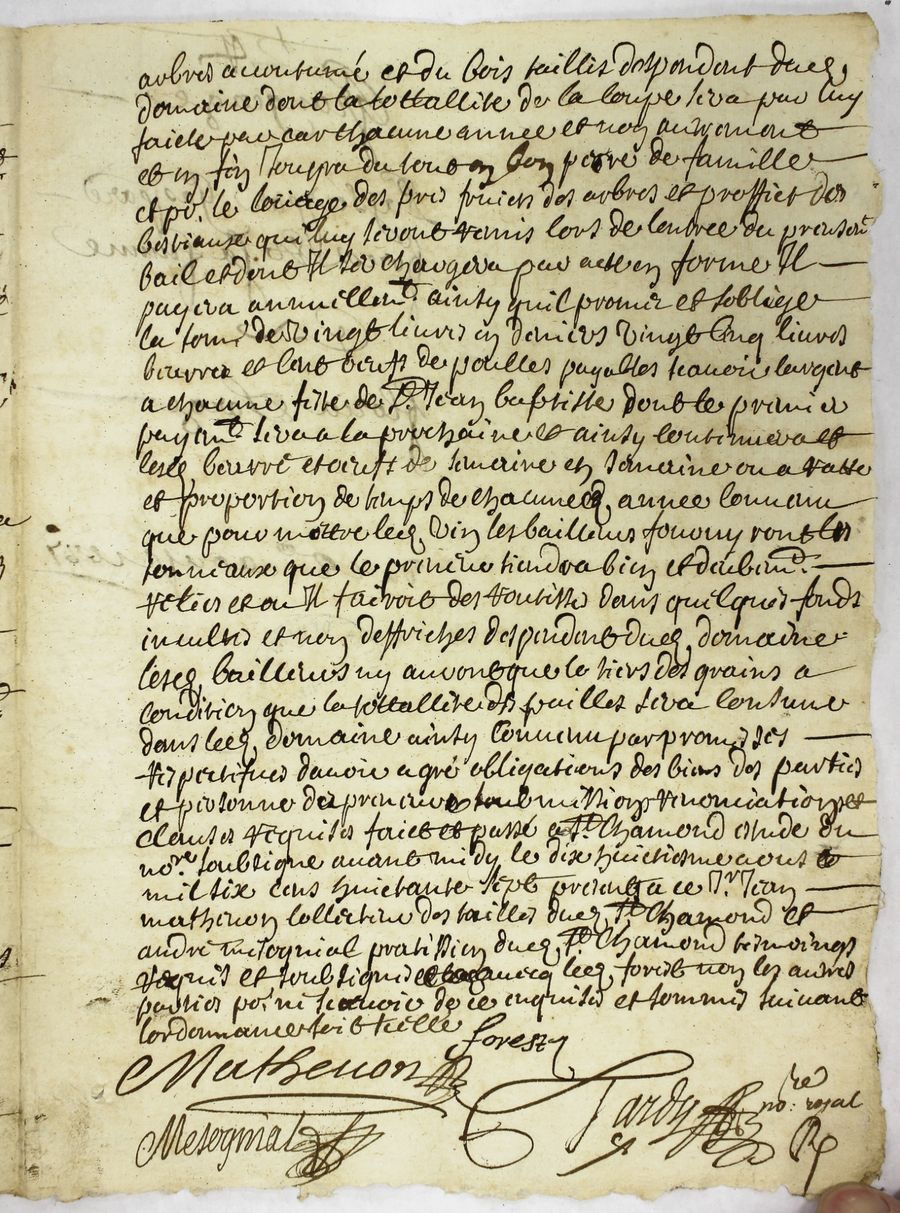 arbres accoutumé et du bois taillis despendent dud.
domaine dont la tottallite de la coupe sera par luy
faicte par car chacune annee et non autrement
et en fin jouyra du tout en bon pere de famille
et po.r le louage des prés fruicts des arbres et proffict des
bestiaux qui luy seront remis lors de lentree du present
bail et dont Il se chargera par acte en forme Il
payera annuellem.t ainsy quil promet et soblige
la som.e de vingt livres en deniers vingt cinq livres
beurre et cent oeufs de poulles payables scavoir largent
a chacune feste de S.t Jean baptiste dont le premier
payem.t sera a la prochaine et ainsy continuera et
lesd. beurre et oeufs de semaine en semaine ou a ratte
et proportion de temps de chacune d. annee convenu
que pour mettre led. vin les bailleurs fourniront les
tonneaux que le preneur tiendra bien et deubem.t
reliés et ou Il fairoit des routisses dans quelques fonds
incultes et non deffrichés despendent dud. domaine
lesd. bailleurs ny auront que le tiers des grains a
condition que la tottallite des pailles sera consume
dans led. domaine ainsy convenu par promesses
respectifves davoir agré obligations des biens des parties
et personne des preneurs soubmissions renonciations et
clauses requises faict et passé a S.t Chamond estude du
no.re soubsigne avant midy le dix huictiesme aoust
mil six cens huictante sept presents a ce s.r Jean
mathevon collecteur des tailles dud. S.t Chamond et
andré mesognial pratissien dud. S.t Chamond tesmoings
requis et soubsignés avecq led. forest non les autres
parties po.r ne scavoir de ce enquises et sommés suivant
lordonnance soit scelle
forest
Mathevon
Tardy no.re royal
Mesognial